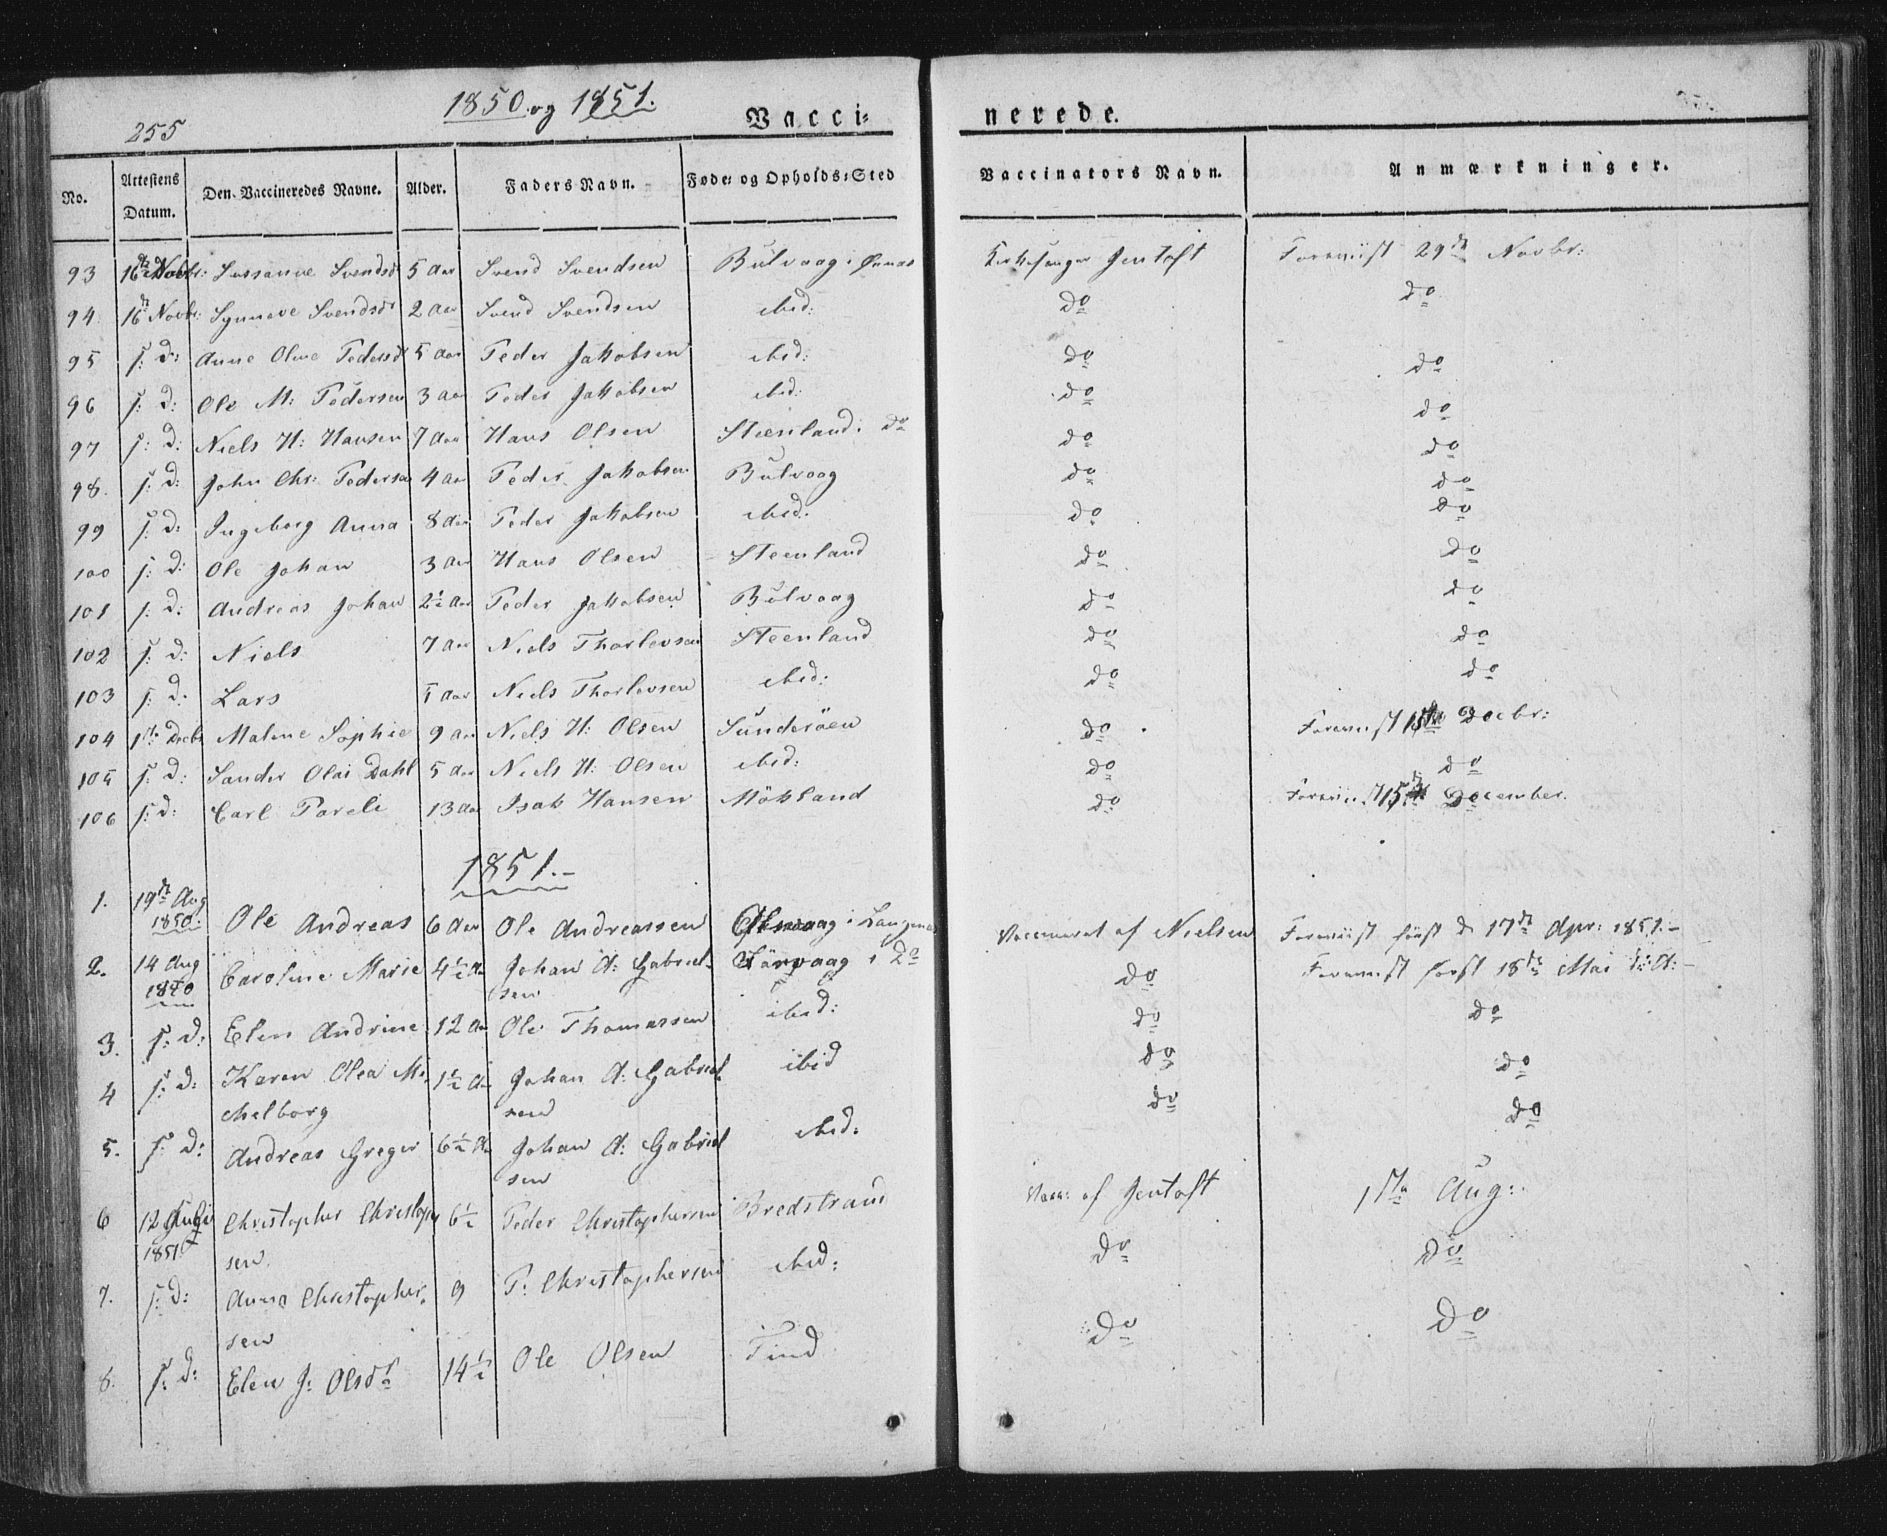 255
1850 og 1851.
Vacci-
nerede.
No.
Attestens Datum.
Den Vaccineredes Navne.
Alder.
Faders Navn.
Føde- og Opholds-Sted
Vaccinators Navn.
Anmærkninger.
93 16de Novbr: Sussanne Svendsd 5 Aar Svend Svendsen Bulvaag i Øxnes Kirkesanger Jentoft Foreviist 29de Novbr:
94. 16de Novbr: Synneve Svendsdr 2 Aar Svend Svendsen ibid: do do
95 s: D: Anne Oline Pedersd 5 Aar Peder Jakobsen ibid: do do
96 s: D: Ole M: Pedersen 3 Aar Peder Jakobsen ibid: do do
97 s: D: Niels H: Hansen 7 Aar Hans Olsen Steenland i do do do
98. s: D: John Chr: Pedersen 4 Aar Peder Jakobsen Bulvaag do do
99 s: D: Ingeborg Anna 8 Aar Peder Jakobsen ibid: do do
100 s: D: Ole Johan 3 Aar Hans Olsen Steenland do do
101 s: D: Andreas Johan 2½ Aar Peder Jakobsen Bulvaag do do
102 s: D: Niels 7 Aar Niels Thorlevsen Steenland do do
103 s: D: Lars 5 Aar Niels Thorlevsen ibid: do do
104 1ste Decbr Malene Sophie 9 Aar Niels H: Olsen Sunderöen do Foreviist 15de Decbr:
105 s: D: Sander Olai Dahl 5 Aar Niels H: Olsen ibid: do do
106 s: D: Carl Pareli 13 Aar Isak Hansen Mökland do Foreviist 15de December.
1851.-
1. 19de Aug 1850. Ole Andreas 6 Aar Ole Andreassen i Langenes Vaccineret af Nielsen Foreviist först d 17de Apr: 1851.-
2. 14 Aug 1850 Caroline Marie 4½ Aar Johan A: Gabriel-
sen
i do do Foreviist först 18de Mai
3. s: D: Elen Andrine 12 Aar Ole Thomassen ibid: do do
4 s: D: Karen Olea Mi-
chelborg
1½ A Johan A: Gabriel-
sen
ibid do do
5. s: D: Andreas Greger 6½ A Johan A: Gabriel
sen
ibid: do do
6 12 1851 Christopher Christoph
sen.
6½ Peder Christophersen Bredstrand Vacc: af Jentoft 1ste Aug:
7. s: D: Anna Christopher-
sen
9 P: Christophersen ibid: do do
8. s: D: Elen J: Olsdr 14½ Ole Olsen Tind do do